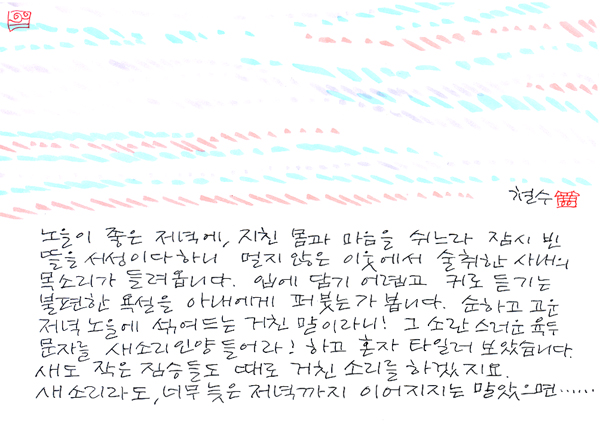 현수
노을이 좋은 저녁에, 지친 몸과 마음을 쉬느라 잠시 빈
뜰을 서성이다 하니 멀지 않은 이웃에서 술취한 사내의
목소리가 들려옵니다. 입에 담기 어렵고 귀로 듣기는
불편한 욕설을 아내에게 퍼붓는가 봅니다. 순하고 고운
저녁 노을에 섞여드는 거친 말이라니! 그 소란스러운 육두
문자를 새소리인양 들어라! 하고 혼자 타일러 보았습니다.
새도 작은 짐승들도 때로 거친 소리를 하겠지요.
새소리라도, 너무 늦은 저녁까지 이어지지는 말았으면......